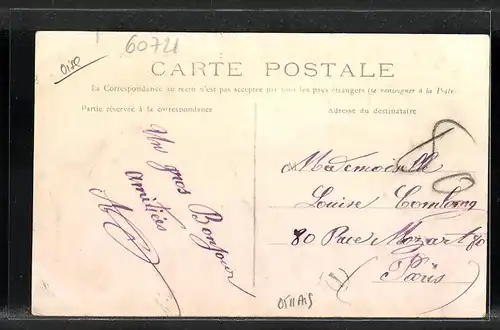 Oise
60721
CARTE POSTALE
La Correspondance au recto n'est pas acceptée par tous les pays étrangers (se renseigner à la Poste)
Partie réservée à la correspondance
Adresse du destinataire
Un gros Bonjour
Amitiés
Mademoiselle
Louise
80 Rue Mozart 80
Paris
80